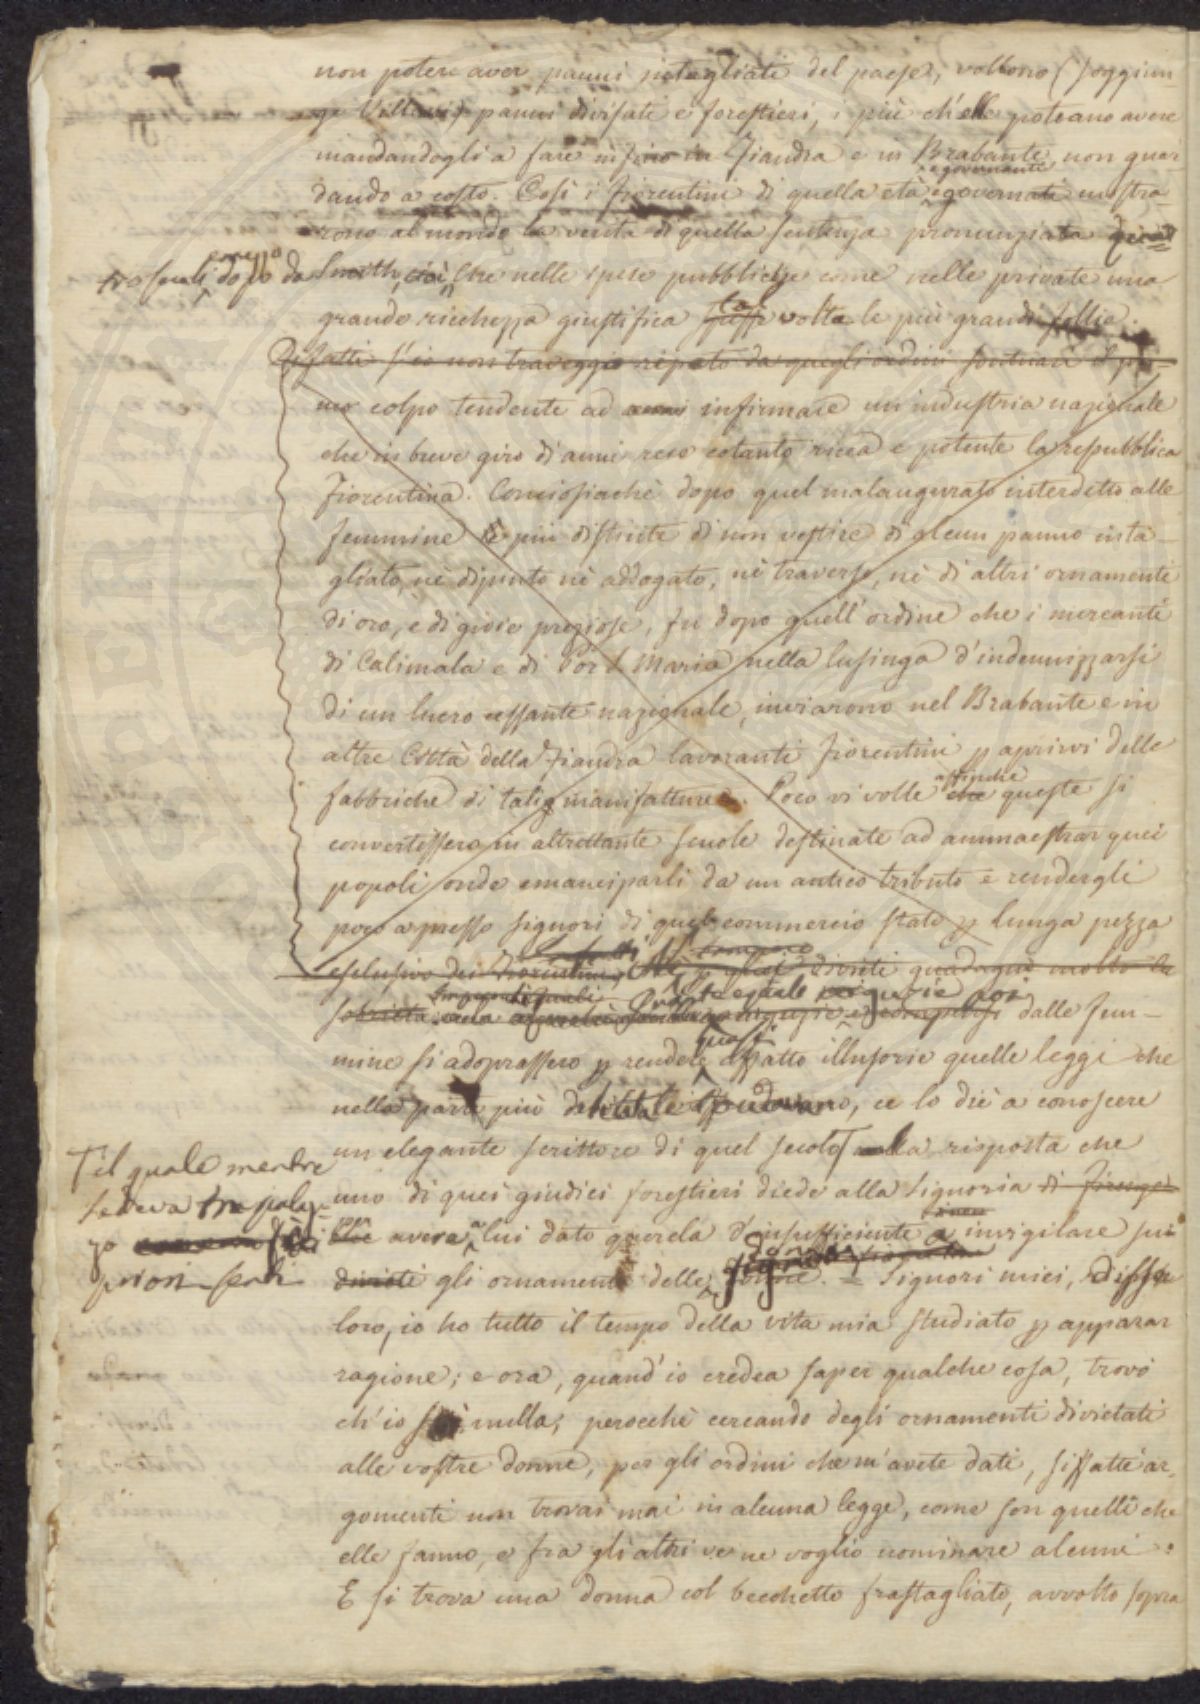 non potere aver panni intagliati del paese, vollono (soggiun-
ge Villani) panni divisati e forestieri, i più ch'elle poteano avere
mandandogli a fare infino in Fiandra e in Brabante, non guar-
dando a costo. Così i fiorentini di quella età e governanti governati mostra-
rono al mondo la verità di quella sentenza pronunziata
tre secoli dopo da Smith, cioè, che nelle spese pubbliche come nelle private una
grande ricchezza giustifica tal volta le più grandi follie.
Difatti s'io non traveggo reputo da quegli ordini suntuari il pri-
mo colpo tendente ad infirmare un'industria nazionale
che in breve giro di anni rese cotanto ricca e potente la repubblica
Fiorentina. Conciosiachè dopo quel malaugurato interdetto alle
femmine le più distinte di non vestire di alcun panno inta-
gliato, nè dipinto nè addogato, nè traverso, nè di altri ornamenti
di oro, e di gioie preziose, fu dopo quell'ordine che i mercanti
di Calimala e di Por S. Maria nella lusinga d'indennizzarsi
di un lucro cessante nazionale, inviarono nel Brabante e in
altre Città della Fiandra lavoranti fiorentini p aprirvi delle
fabbriche di tali manifatture. Poco vi volle affinchè che queste si
convertissero in altrettante scuole destinate ad ammaestrar quei
popoli onde emanciparli da un antico tributo e rendergli
poco appresso signori di quel commercio stato p lunga pezza
esclusivo dei Fiorentini, divieti guadagnò molto la
sobrietà quale arguzie poi dalle fem-
mine si adoprassero p rendere quasi affatto illusorie quelle leggi che
nella parte più debitale, ce lo diè a conoscere
un elegante scrittore di quel secolo nella risposta che
il quale mentre
uno di quei giudici forestieri diede alla Signoria di Firenze
sedeva
che aveva a lui dato querela d'insufficiente a invigilare sui
priori
divieti gli ornamenti delle donne. = Signori miei, disse
loro, io ho tutto il tempo della vita mia studiato p apparar
ragione; e ora, quand'io credea saper qualche cosa, trovo
ch'io so nulla; perocchè cercando degli ornamenti divietati
alle vostre donne, per gli ordini che m'avete dati, siffatti ar-
gomenti non trovai mai in alcuna legge, come son quelli che
elle fanno, e fra gli altri ve ne voglio nominare alcuni:
E si trova una donna col becchetto frastagliato, avvolto sopra